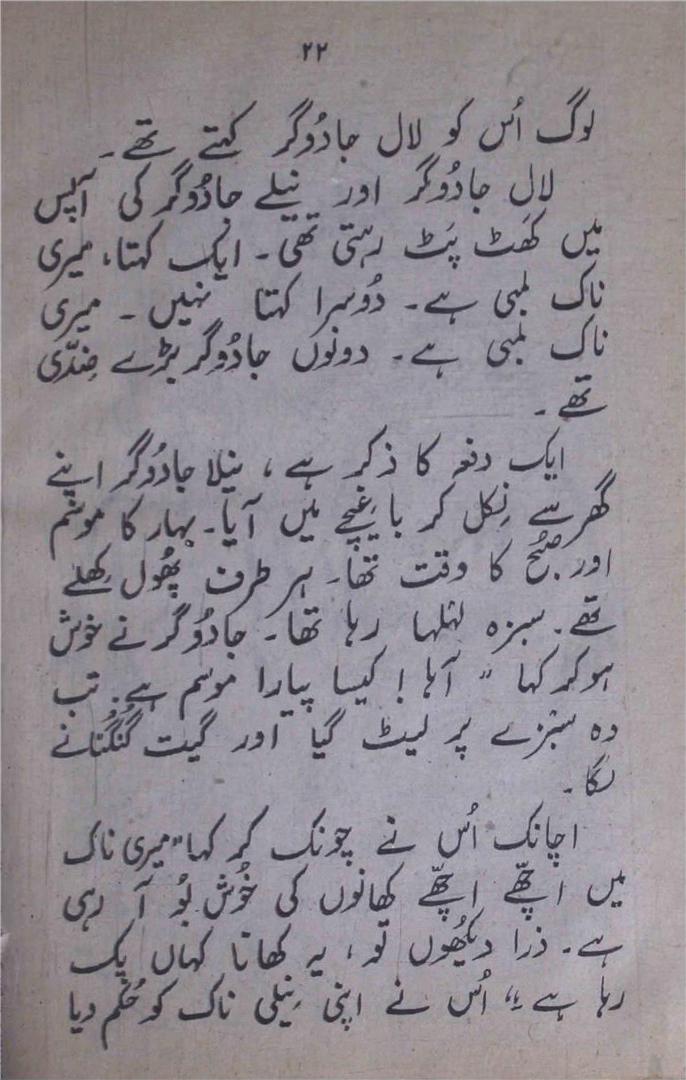 ۲۲
لوگ اُس کو لال جادُوگر کہتے تھے۔
لال جادُوگر اور نیلے جادُوگر کی آپس
میں کھَٹ پَٹ رہتی تھی۔ ایک کہتا، میری
ناک لمبی ہے۔ دُوسرا کہتا نہیں۔ میری
ناک لمبی ہے۔ دونوں جادُوگر بڑے ضِدّی
تھے۔
ایک دفعہ کا ذکر ہے، نیلا جادُوگر اپنے
گھر سے نِکل کر باغیچے میں آیا۔ بہار کا موسم
اور صُبح کا وقت تھا۔ ہر طرف پھُول کھِلے
تھے۔ سبزہ لہلہا رہا تھا۔ جادُوگر نے خوش
ہو کر کہا "آہا! کیسا پیارا موسم ہے۔ تب
وہ سبزے پر لیٹ گیا اور گیت گُنگُنانے
لگا۔
اچانک اُس نے چونک کر کہا "میری ناک
میں اچھّے اچھّے کھانوں کی خُوش بُو آ رہی
ہے۔ ذرا دیکھُوں تو، یہ کھانا کہاں پک
رہا ہے؟" اُس نے اپنی نِیلی ناک کو حُکم دیا